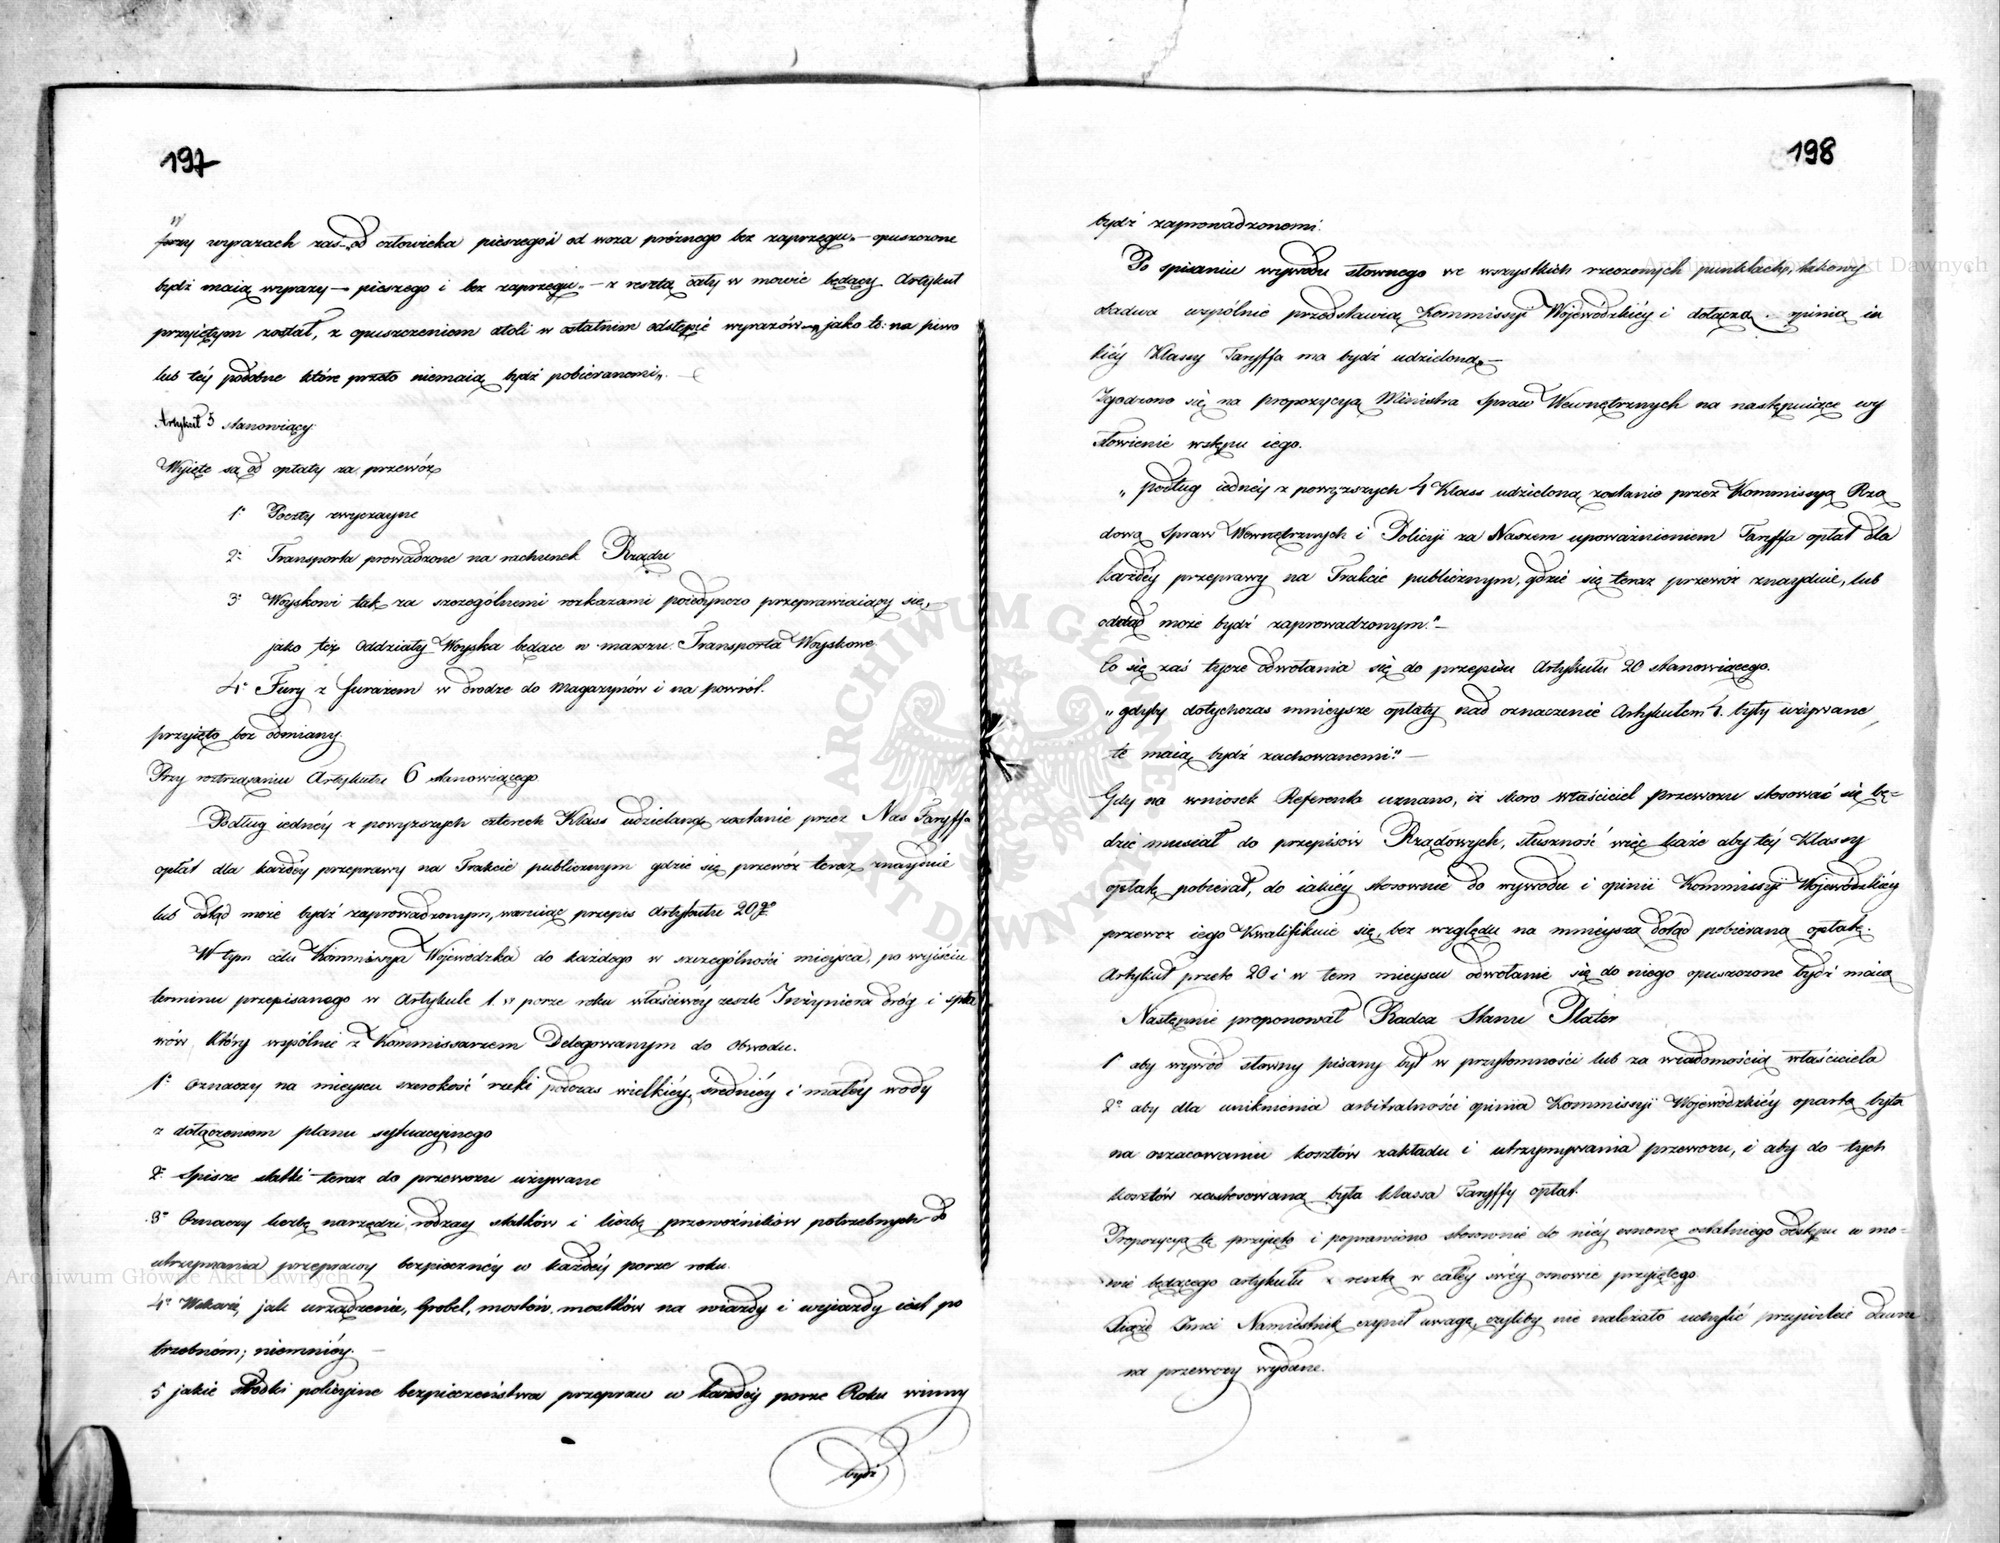 197
przy wyrazach zaś „od człowieka pieszego i od woza próżnego bez zaprzęgu„ — opuszczone
bydź maią wyrazy — pieszego i bez zaprzęgu„ — z resztą cały w mowie będący Artykuł
przyiętym został, z opuszczeniem atoli w ostatnim odstępie wyrazów — jako to: na piwo
lub téy podobne które przeto niemaią bydź pobieranemi„. —
Artykuł 5 stanowiący
Wyięte są od opłaty za przewóz
1º Poczty zwyczayne
2º Transporta prowadzone na rachunek Rządu
3º Woyskowi tak za szczególnemi rozkazami poiedynczo przeprawiaiący się,
jako też Oddziały Woyska będące w marszu. Transporta Woyskowe
4º Fury z furażem w drodze do Magazynów i na powrót.
przyięto bez odmiany.
Przy roztrząsaniu Artykułu 6 stanowiącego
Podług iednéy z powyższych czterech Klass udzieloną zostanie przez Nas Taryffa
opłat dla każdéy przeprawy na Trakcie publicznym gdzie się przewóz teraz znayduie
lub odtąd może bydź zaprowadzonym, waruiąc przepis Artykułu 20go
W tym celu Kommissya Wojewódzka do każdego w szczególności mieysca, po wyiściu
terminu przepisanego w Artykule 1. w porze roku właściwéy zeszle Inżyniera dróg i spła
wów który wspólnie z Kommissarzem Delegowanym do Obwodu.
1º Oznaczy na mieyscu szerokość rzeki podczas wielkiéy, średniéy i małéy wody
z dołączeniem planu sytuacyinego
2º Spisze statki teraz do przewozu używane
3º Oznaczy liczbę narzędzi, rodzay statków i liczbę przewoźników potrzebnych do
utrzymania przeprawy bezpiecznéy w każdéy porze roku.
4º Wskaże, jak urządzenie, Grobel, mostów, mostków na wiazdy i wyjazdy iest po
trzebném; niemniéy. —
5 jakie środki policyine bezpieczeństwa przepraw w każdéy porze Roku winny
bydź
198
bydź zaprowadzonemi.
Po spisaniu wywodu słownego we wszystkich rzeczonych punktach, takowy
obadwa wspólnie przedstawią Kommissyi Wojewódzkiéy i dołączą opinią ia
kiéy Klassy Taryffa ma bydź udzieloną„ —
Zgodzono się na propozycyą Ministra Spraw Wewnętrznych na następuiące wy
słowienie wstępu iego.
„ podług iednéy z powyższych 4 Klass udzieloną zostanie przez Kommissyą Rzą
dową Spraw Wewnętrznych i Policyi za Naszem upoważnieniem Taryffa opłat dla
każdéy przeprawy na Trakcie publicznym, gdzie się teraz przewóz znayduie, lub
odtąd może bydź zaprowadzonym." —
Co się zaś tycze odwołania się do przepisu Artykułu 20 stanowiącego.
„ gdyby dotychczas mnieysze opłaty nad oznaczenie Artykułem 4. były używane,
te maią bydź zachowanemi". —
Gdy na wniosek Referenta uznano, iż skoro właściciel przewozu stosować się bę-
dzie musiał do przepisów Rządowych, słuszność więc każe aby téy Klassy
opłatę pobierał, do iakiéy stosownie do wywodu i opinii Kommissyi Wojewódzkiéy
przewoz iego Kwalifikuie się, bez względu na mnieyszą dotąd pobieraną opłatę.
Artykuł przeto 20 i w tem mieyscu odwołanie się do niego opuszczone bydź maią
Następnie proponował Radca Stanu Plater
1º aby wywód słowny pisany był w przytomności lub za wiadomością właściciela
2º aby dla uniknienia arbitralności opinia Kommissyi Wojewódzkiéy opartą była
na oszacowaniu kosztów zakładu i utrzymywania przewozu, i aby do tych
kosztów zastosowaną była klassa Taryffy opłat.
Propozycyą tę przyięto i poprawiono stosownie do niéy osnowę ostatniego odstępu w mo-
wie będącego artykułu z resztą w całéy swéy osnowie przyiętego.
Xiąże Jmci Namiestnik czynił uwagę, czyliby nie należało uchylić przywileie dawne
na przewozy wydane.